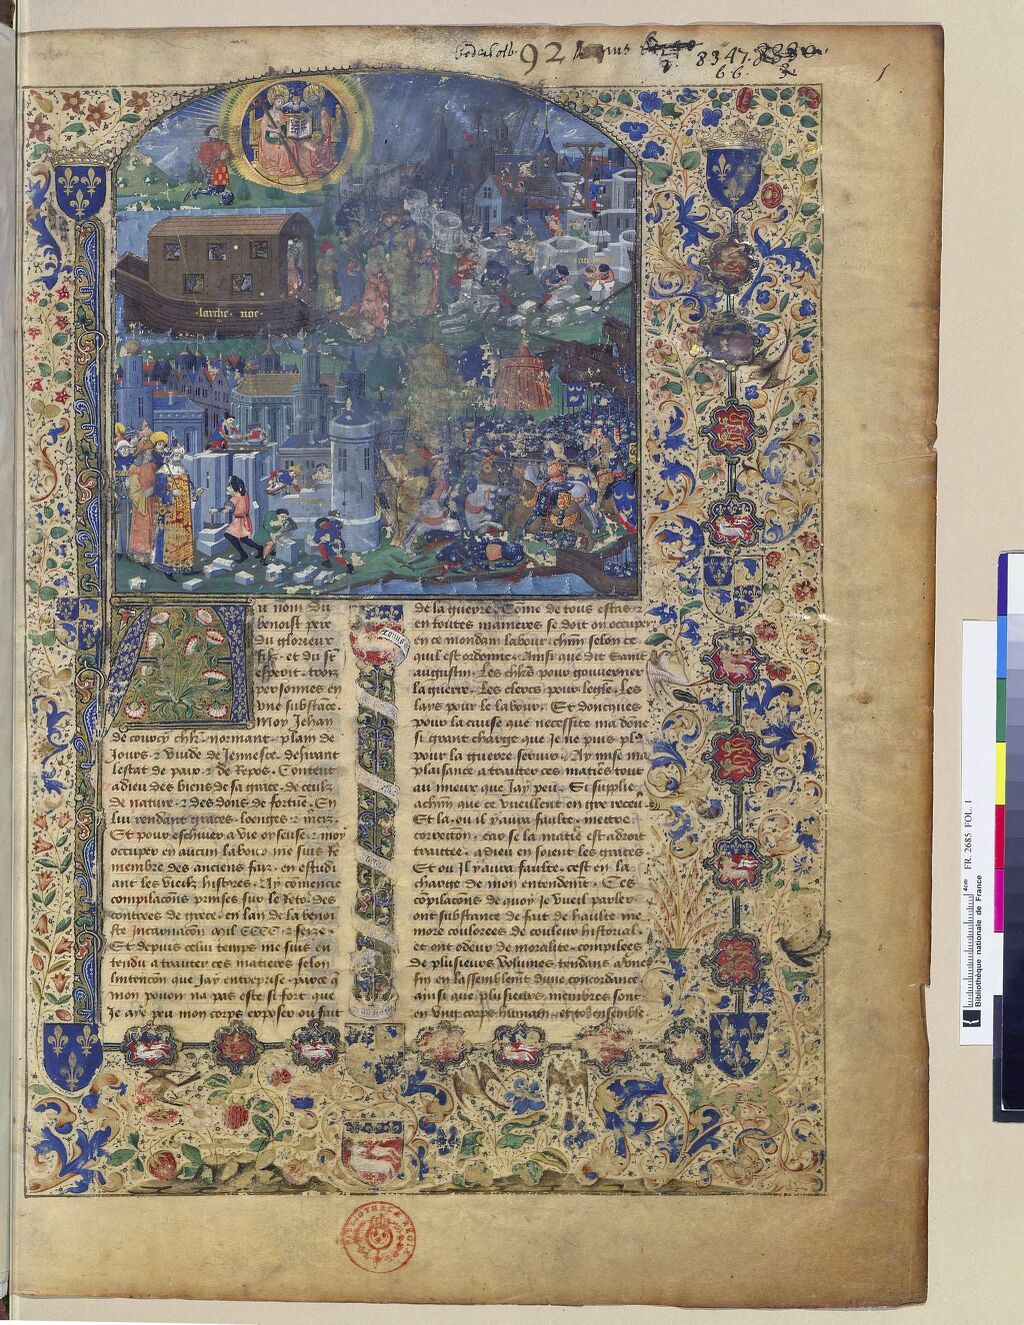 92
8347.
66.
1
larche noe
u nom du
benoist pere
du glorieux
filz et du st
esperit trois
personnes en
vne substãce.
moy Jehan
de courcy chlr normant. plain de
Jours. 7 vuide de Jennesce. desirant
lestat de paix. 7 de Repos. Content
a dieu des biens de sa grace. de ceulx
de nature. 7 des dons de fortune. En
lui rendant graces. loenges. 7 merz.
Et pour eschiuer a vie oyseuse. 7 moy
occuper en aucun labour. me suis Re
membre des anciens faiz. en estudi
ant les vielz histores. Ay cõmencie
compilacons prinses sur le feto. des
contrees de grece. en lan de la benoi
ste Incarnacõn mil CCCC. 7 seize.
Et depuis celui temps me suis en
tendu a traitter ces matieres selon
lintencõn que Jay entreprise. parce q̃
mon pouoir na pas este si fort que
Je aye peu mon corps exposer ou fait
de la guerre. Cõme de tous estas
en toutes manieres se doit on occuper
en ce mondain labour. chũn selon ce
quil est ordonne. Ainsi que dit saint
augustin. Les chlrs pour gouuerner
la guerre. Les clercs pour legle. Les
lays pour le labour. Et doncques
pour la cause que necessite ma dõne
si grant charge que Je ne puis pl9
pour la guerre seruir. Ay mise ma
plaisance a traitter ces matres tout
au mieux que Jay peu. Si supplie
a chũn que ce vueillent en gre receu
Et la ou il y aura faulte. mettre
correction. car se la matie est adroit
traittee. a dieu en soient les graces
Et ou Il y aura faulte. cest en la
charge de mon entendemt. Ces
cõpilacons de quoy Je vueil parler
ont substance de fait de haulte me
moire coulorees de couleur historial.
et ont odeur de moralite. compilees
de plusieurs volumes tendans a vne
fin en lassemblemt dune concordance
ainsi que plusieurs membres sont
en vng corps humain. et to9 ensemble
BIBLIOTHECAE REGIAE
4cm
FR. 2685 FOL. 1
Bibliothèque nationale de France